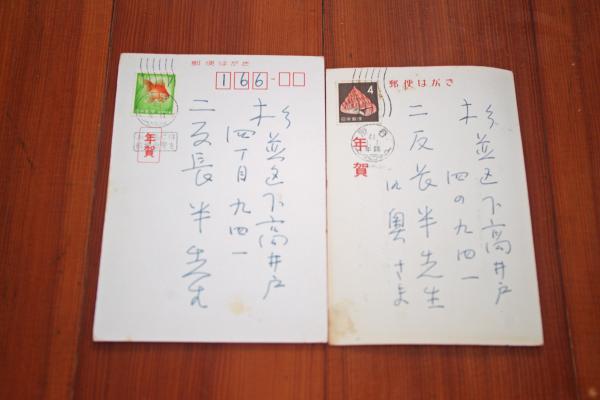 郵便はがき
166
年賀
杉並区下高井戸
四丁目九四一
二反長半先生
郵便はがき
4
日本郵便
年賀
杉並区下高井戸
四の九四一
二反長半先生
奥さま